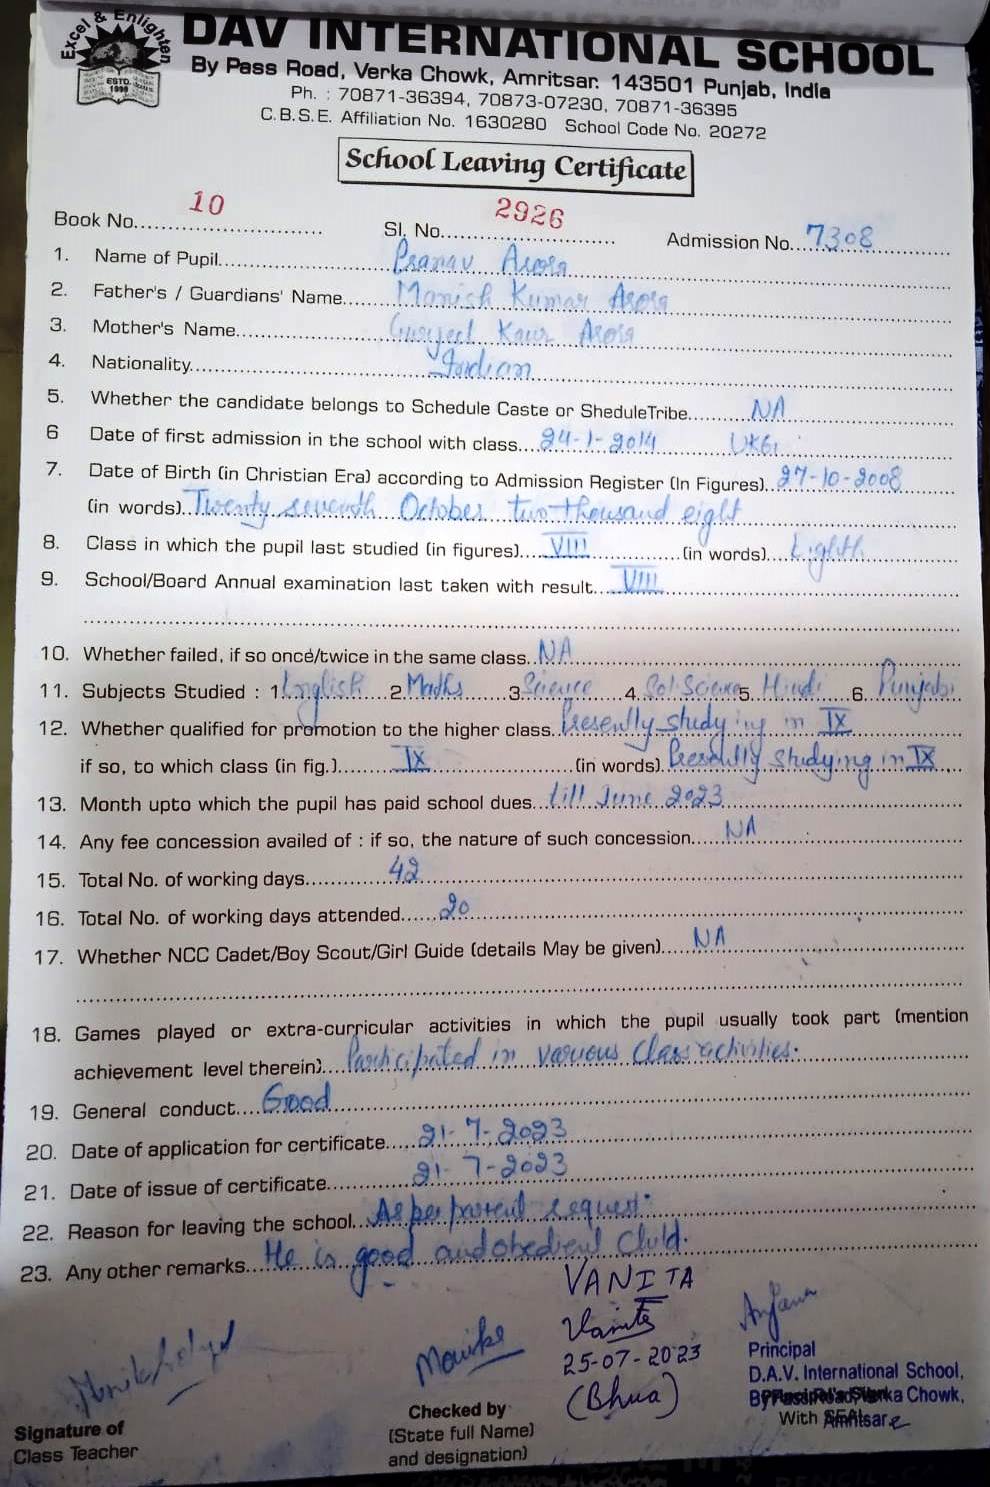 Excel & Enlighten
ESTD.
DAV INTERNATIONAL SCHOOL
By Pass Road, Verka Chowk, Amritsar. 143501 Punjab, India
Ph. : 70871-36394, 70873-07230, 70871-36395
C.B.S.E. Affiliation No. 1630280 School Code No. 20272
School Leaving Certificate
Book No. 10 Sl. No. 2926 Admission No. 7308
1. Name of Pupil Pranav Arora
2. Father's / Guardians' Name Manish Kumar Arora
3. Mother's Name Kaur Arora
4. Nationality Indian
5. Whether the candidate belongs to Schedule Caste or SheduleTribe NA
6 Date of first admission in the school with class 24-1-2014 UKG
7. Date of Birth (in Christian Era) according to Admission Register (In Figures) 27-10-2008
(in words) Twenty seventh October two thousand eight
8. Class in which the pupil last studied (in figures) VIII (in words) Eighth
9. School/Board Annual examination last taken with result VIII
10. Whether failed, if so once/twice in the same class NA
11. Subjects Studied : 1. English 2. Maths 3. Science 4. Sol. Science 5. Hindi 6. Punjabi
12. Whether qualified for promotion to the higher class Presently studying in IX
if so, to which class (in fig.) IX (in words) Presently studying in IX
13. Month upto which the pupil has paid school dues till June 2023
14. Any fee concession availed of : if so, the nature of such concession NA
15. Total No. of working days 42
16. Total No. of working days attended 20
17. Whether NCC Cadet/Boy Scout/Girl Guide (details May be given) NA
18. Games played or extra-curricular activities in which the pupil usually took part (mention
achievement level therein) Participated in various class activities.
19. General conduct Good
20. Date of application for certificate 21-7-2023
21. Date of issue of certificate 21-7-2023
22. Reason for leaving the school As per parent request.
23. Any other remarks He is good and obedient child.
VANITA
Vanita
25-07-2023
(Bhua)
Anjana
Principal
D.A.V. International School,
Chowk,
With
Checked by
(State full Name)
and designation)
Signature of
Class Teacher